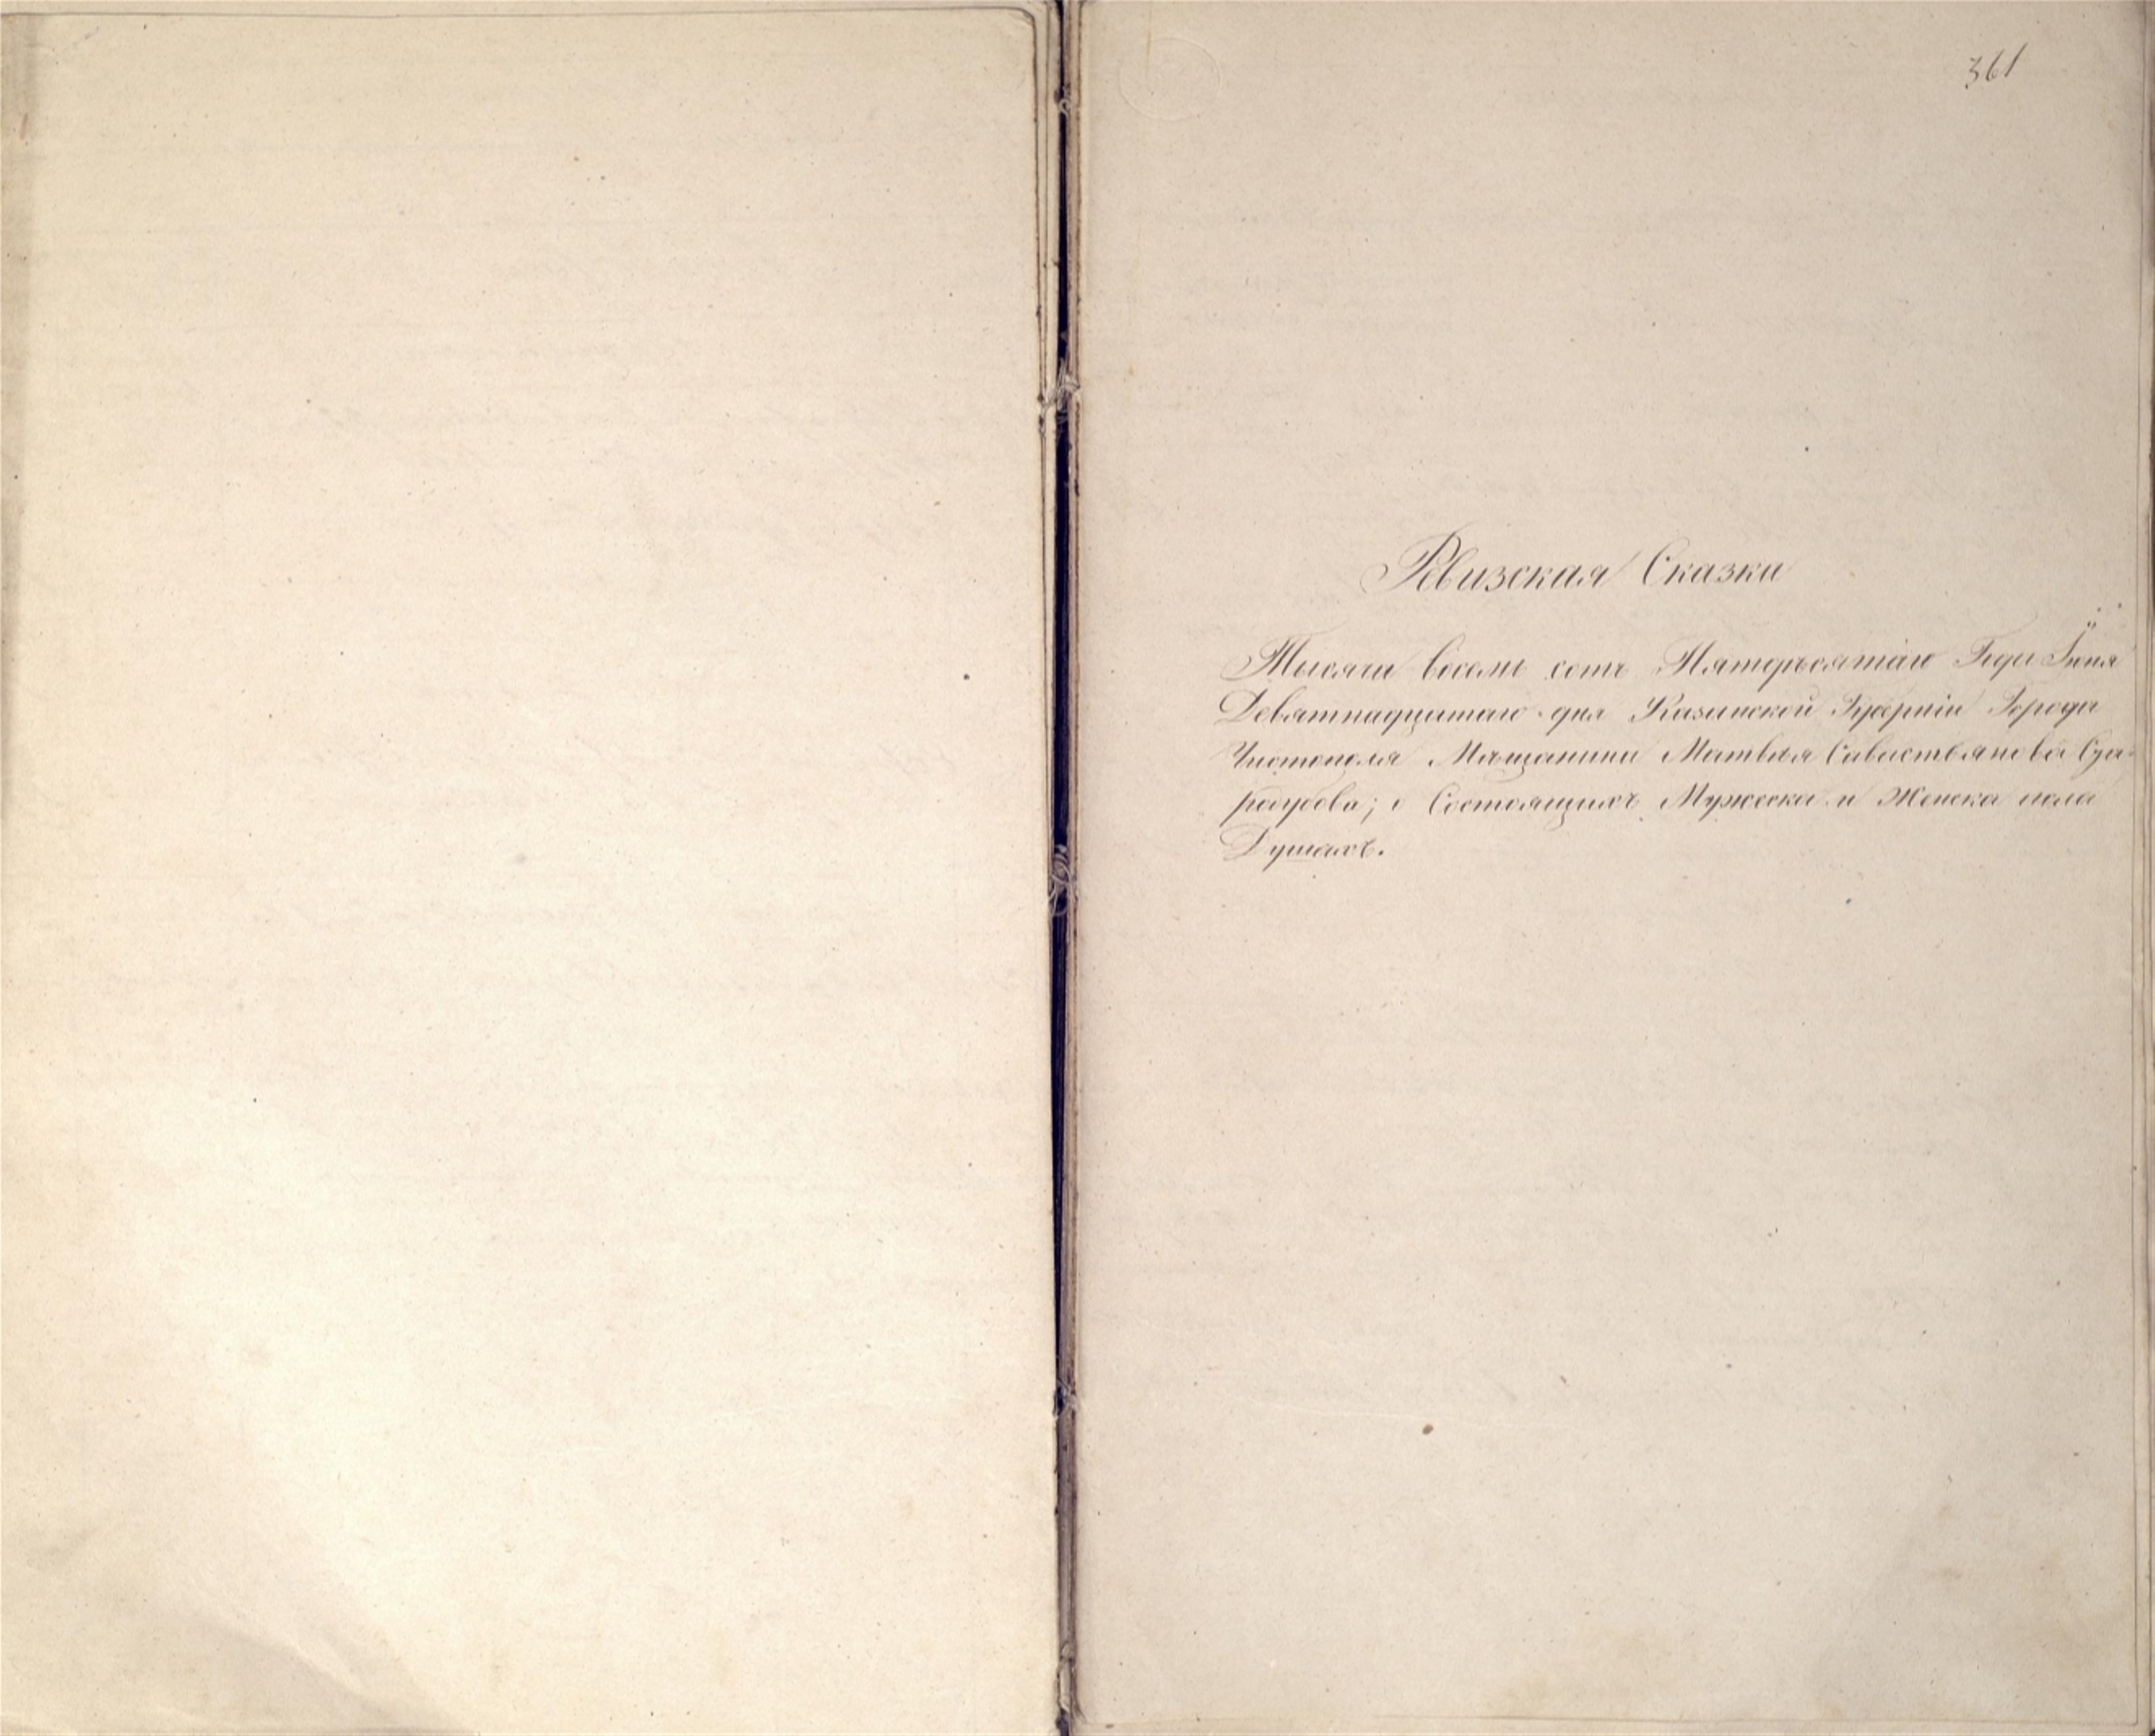 361
Ревизская Сказка
Тысяча восемь сотъ Пятдесятаго Года Іюня
Девятнадцатаго дня Казанской Губерніи Города
Чистополя Мещанина Матвея Савастьянова
о Состоящихъ Мужеска и Женска пола
Душахъ.